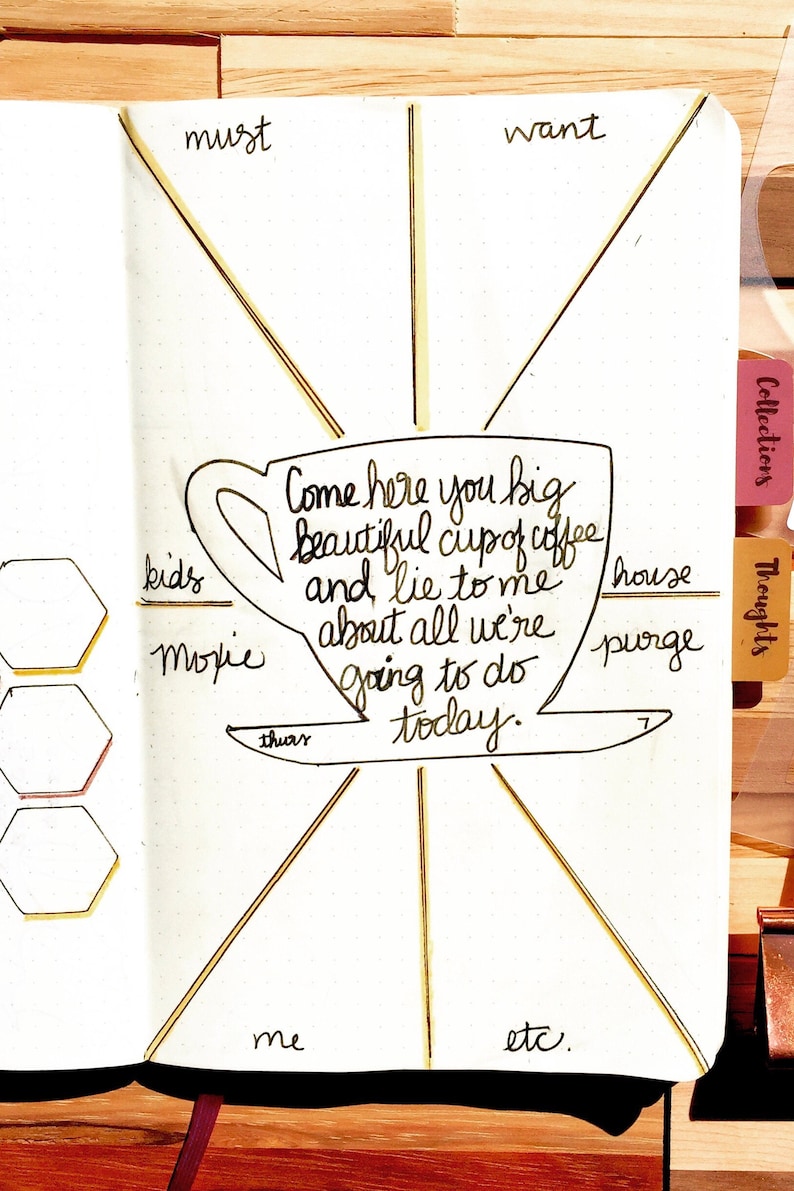 must
want
Come here you big
beautiful cup of coffee
and lie to me
about all we're
going to do
today.
thurs
7
kids
house
Moxie
purge
me
etc.
Collections
Thoughts